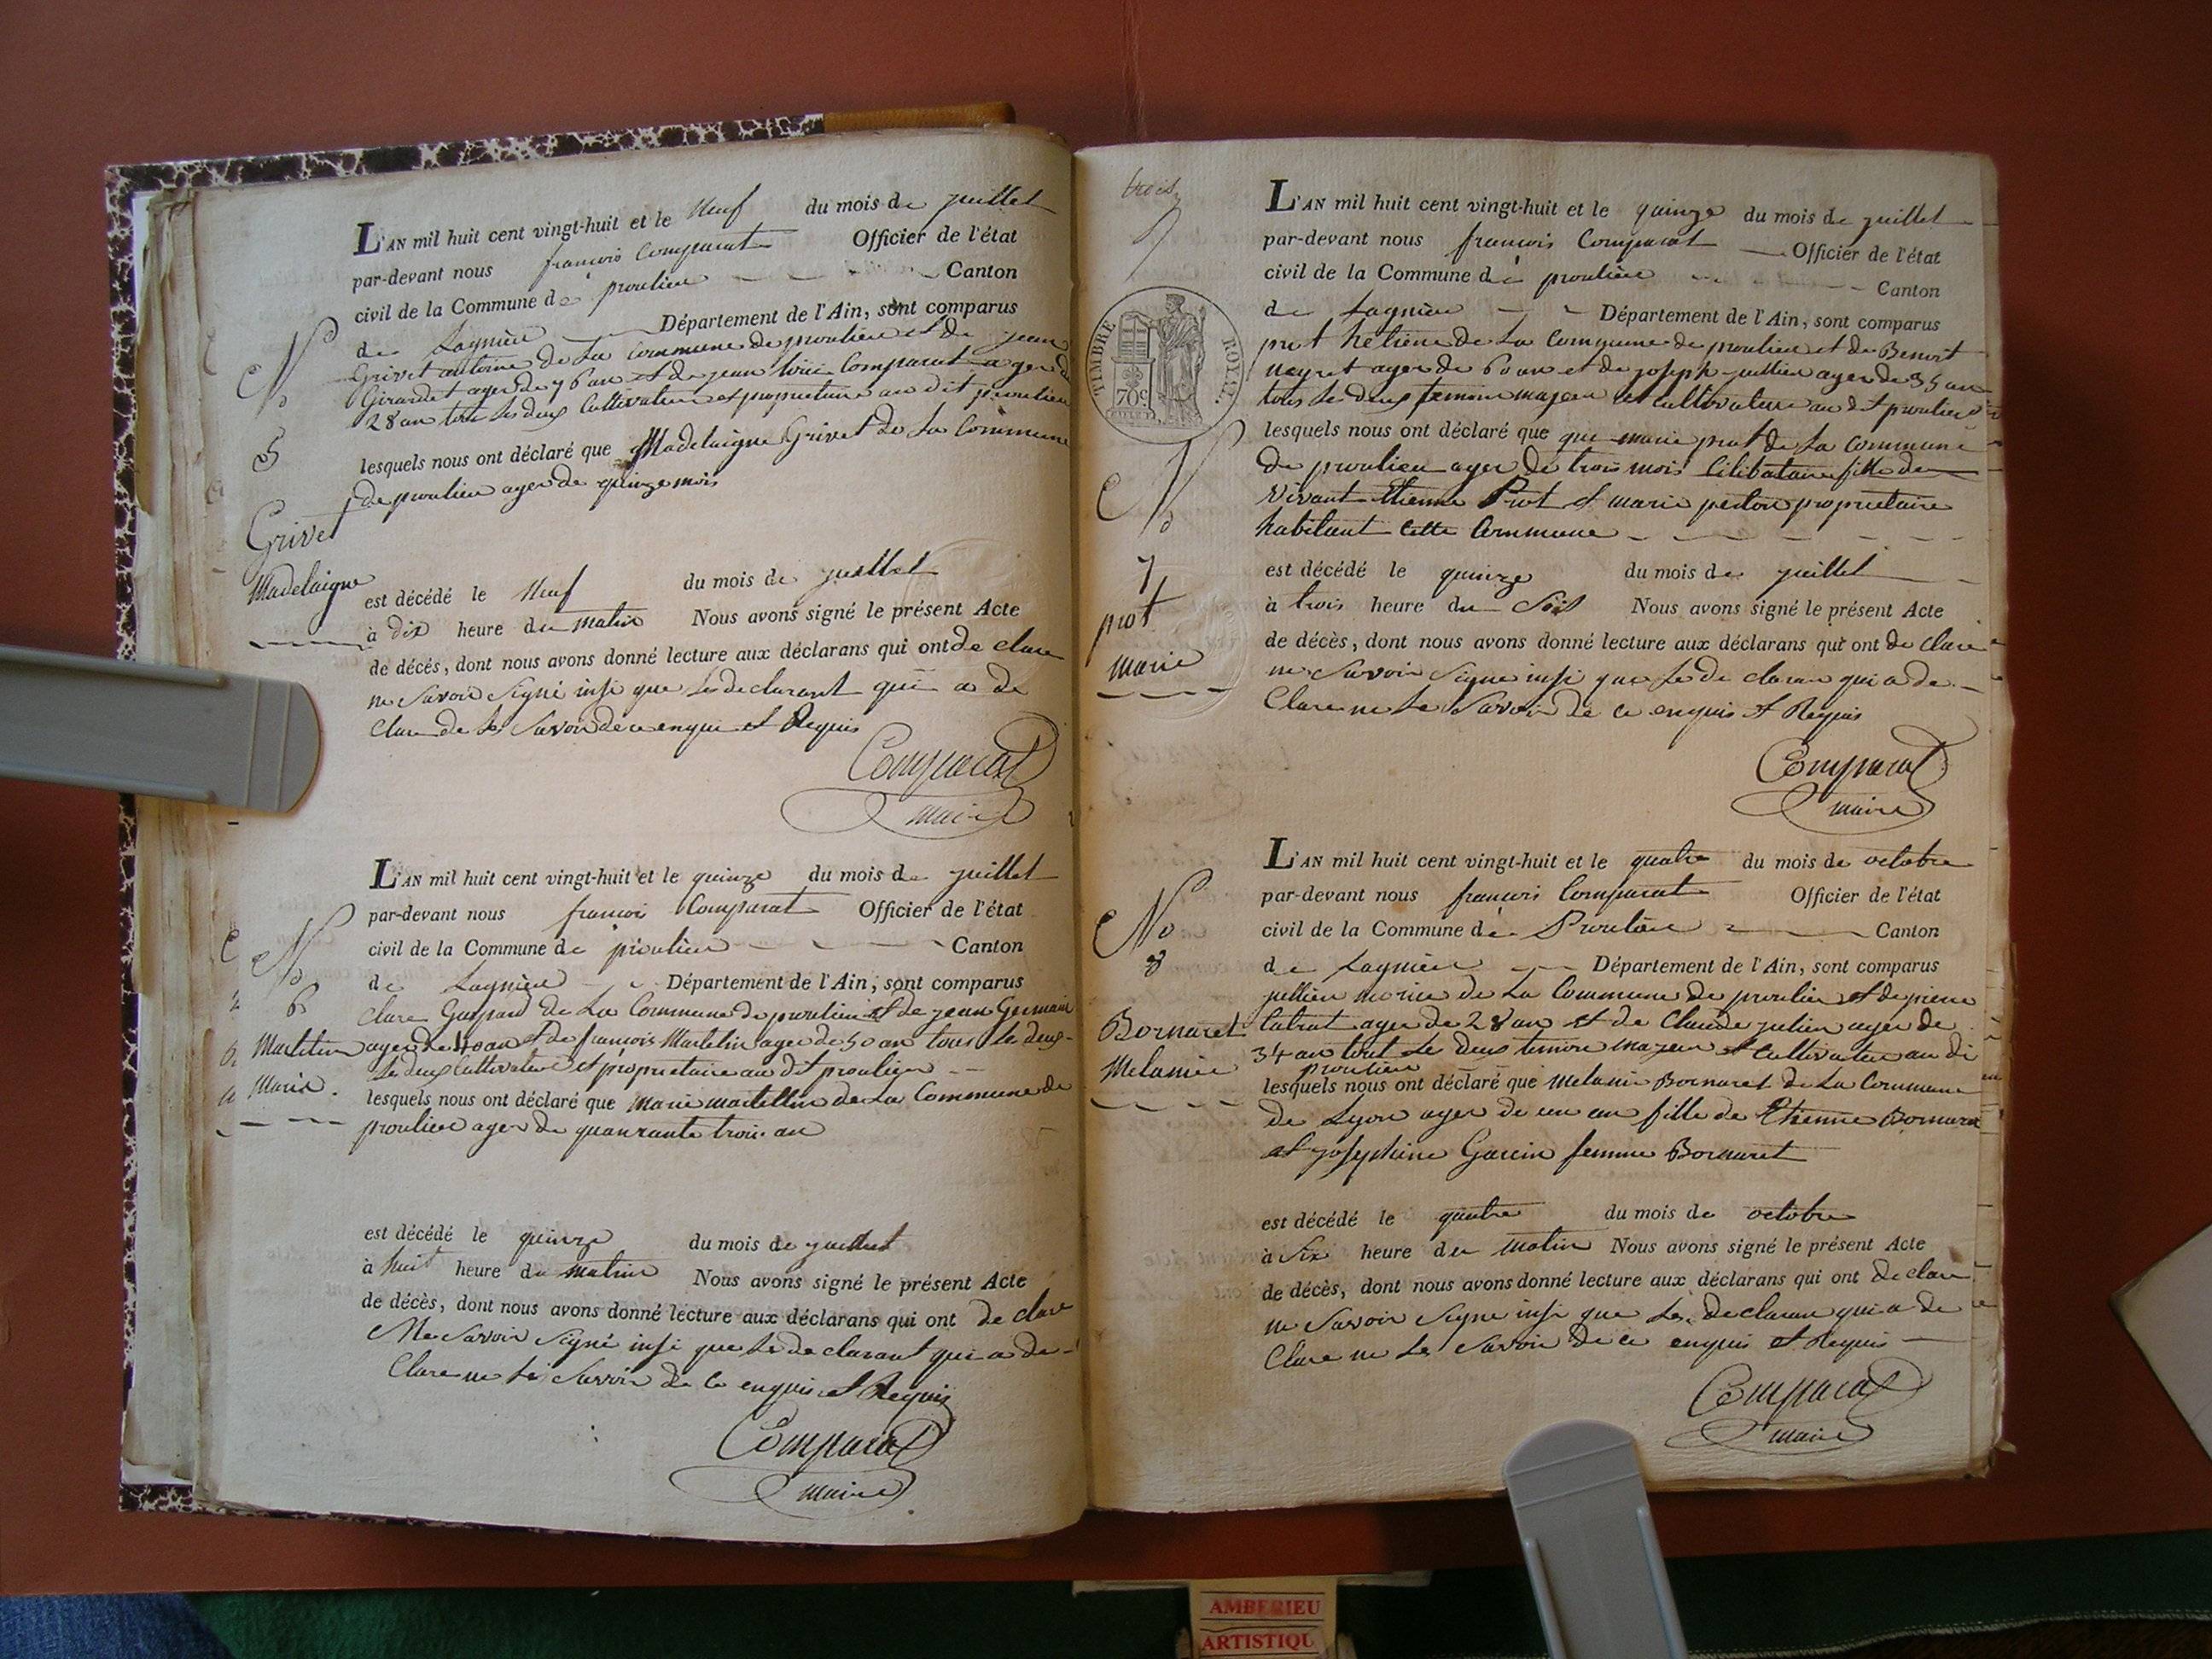 L'AN mil huit cent vingt-huit et le neuf du mois de juillet
par-devant nous francois Comparat Officier de l'état
civil de la Commune de proulieu Canton
de Lagnieu Département de l'Ain, sont comparus
Grivet antoine de La Commune de proulieu et de jean
Girardet ager de 76 an et de jean Comparat ager de
28 an tous Les deux Cultivateur et proprietaire au dit proulieu
lesquels nous ont déclaré que Madelaigne Grivet de La Commune
de proulieu ager de quinze mois
est décédé le neuf du mois de juillet
à dix heure du matin Nous avons signé le présent Acte
de décès, dont nous avons donné lecture aux déclarans qui ont de clare
ne Savoir Signé insi que Le declarant qui a de
Clare de Le Savoir de ce enquis et Requis
Comparat
maire
No
5
Grivet
Madelaigne
L'AN mil huit cent vingt-huit et le quinze du mois de juillet
par-devant nous francois Comparat Officier de l'état
civil de la Commune de proulieu Canton
de Lagnieu Département de l'Ain, sont comparus
Clare Gaspard de La Commune de proulieu et de jean Germain
ager de 40 an et de francois Martelin ager de 50 an tous Le deux
Les deux Cultivateur et proprietaire au dit proulieu
lesquels nous ont déclaré que Marie martellin de La Commune de
proulieu ager de quanrante trois an
est décédé le quinze du mois de juillet
à huit heure du matin Nous avons signé le présent Acte
de décès, dont nous avons donné lecture aux déclarans qui ont de clare
Ne Savoir Signé insi que Le de clarant qui a de
Clare ne Le Savoir de Ce enquis et Requis
Comparat
maire
No
6
Martelin
Marie.
trois
TIMBRE ROYAL
70c
L'AN mil huit cent vingt-huit et le quinze du mois de juillet
par-devant nous francois Comparat Officier de l'état
civil de la Commune de proulieu Canton
de Lagnieu Département de l'Ain, sont comparus
prot hetiene de La Commune de proulieu et de Benoit
neyret ager de 60 an et de joseph jullien ager de 35 an
tous Le deux temoin majeur et cultivateur au dit proulieu
lesquels nous ont déclaré que que marie prot de La Commune
de proulieu ager de trois mois Cilibataire fille de
vivant Etienne Prot et marie perton proprietaire
habitant Cette Commune
est décédé le quinze du mois de juillet
à trois heure du Soir Nous avons signé le présent Acte
de décès, dont nous avons donné lecture aux déclarans qui ont de Clare
ne Savoir Signe insi que Le de claran qui a de
Clare ne Le Savoir de ce enquis et Requis
Comparat
maire
No
7
prot
marie
L'AN mil huit cent vingt-huit et le quatre du mois de octobre
par-devant nous francois Comparat Officier de l'état
civil de la Commune de Proulieu Canton
de Lagnieu Département de l'Ain, sont comparus
jullien marie de La Commune de proulieu et de pierre
Labrat ager de 28 an et de Claude julien ager de
34 an tout Le deux temoin majeur et Cultivateur au di
proulieu
lesquels nous ont déclaré que Melanie Bornaret de La Commune
de Lyon ager de un an fille de Etienne Bornaret
et josephine Garcin femme Bornaret
est décédé le quatre du mois de octobre
à Six heure du matin Nous avons signé le présent Acte
de décès, dont nous avons donné lecture aux déclarans qui ont de clare
ne Savoir Signe insi que Le declaran qui a de
Clare ne Le Savoir de ce enquis et Requis
Comparat
maire
No
8
Bornaret
Melanie
AMBERIEU
ARTISTIQU